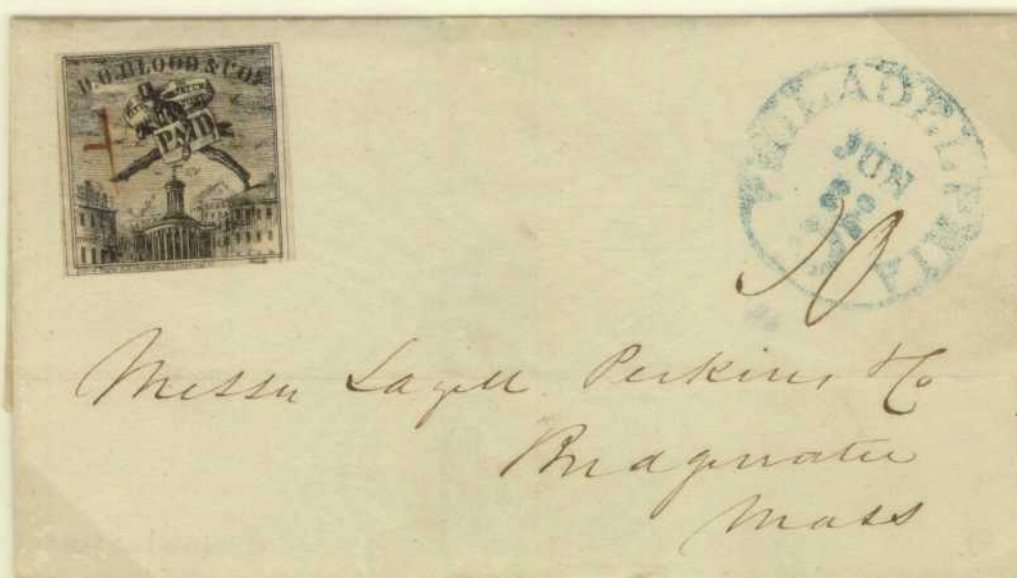 D.O. BLOOD & CO'S
PAID
PHILADELPHIA
JUN
10
Messrs Lazell Perkins & Co
Bridgewater
Mass